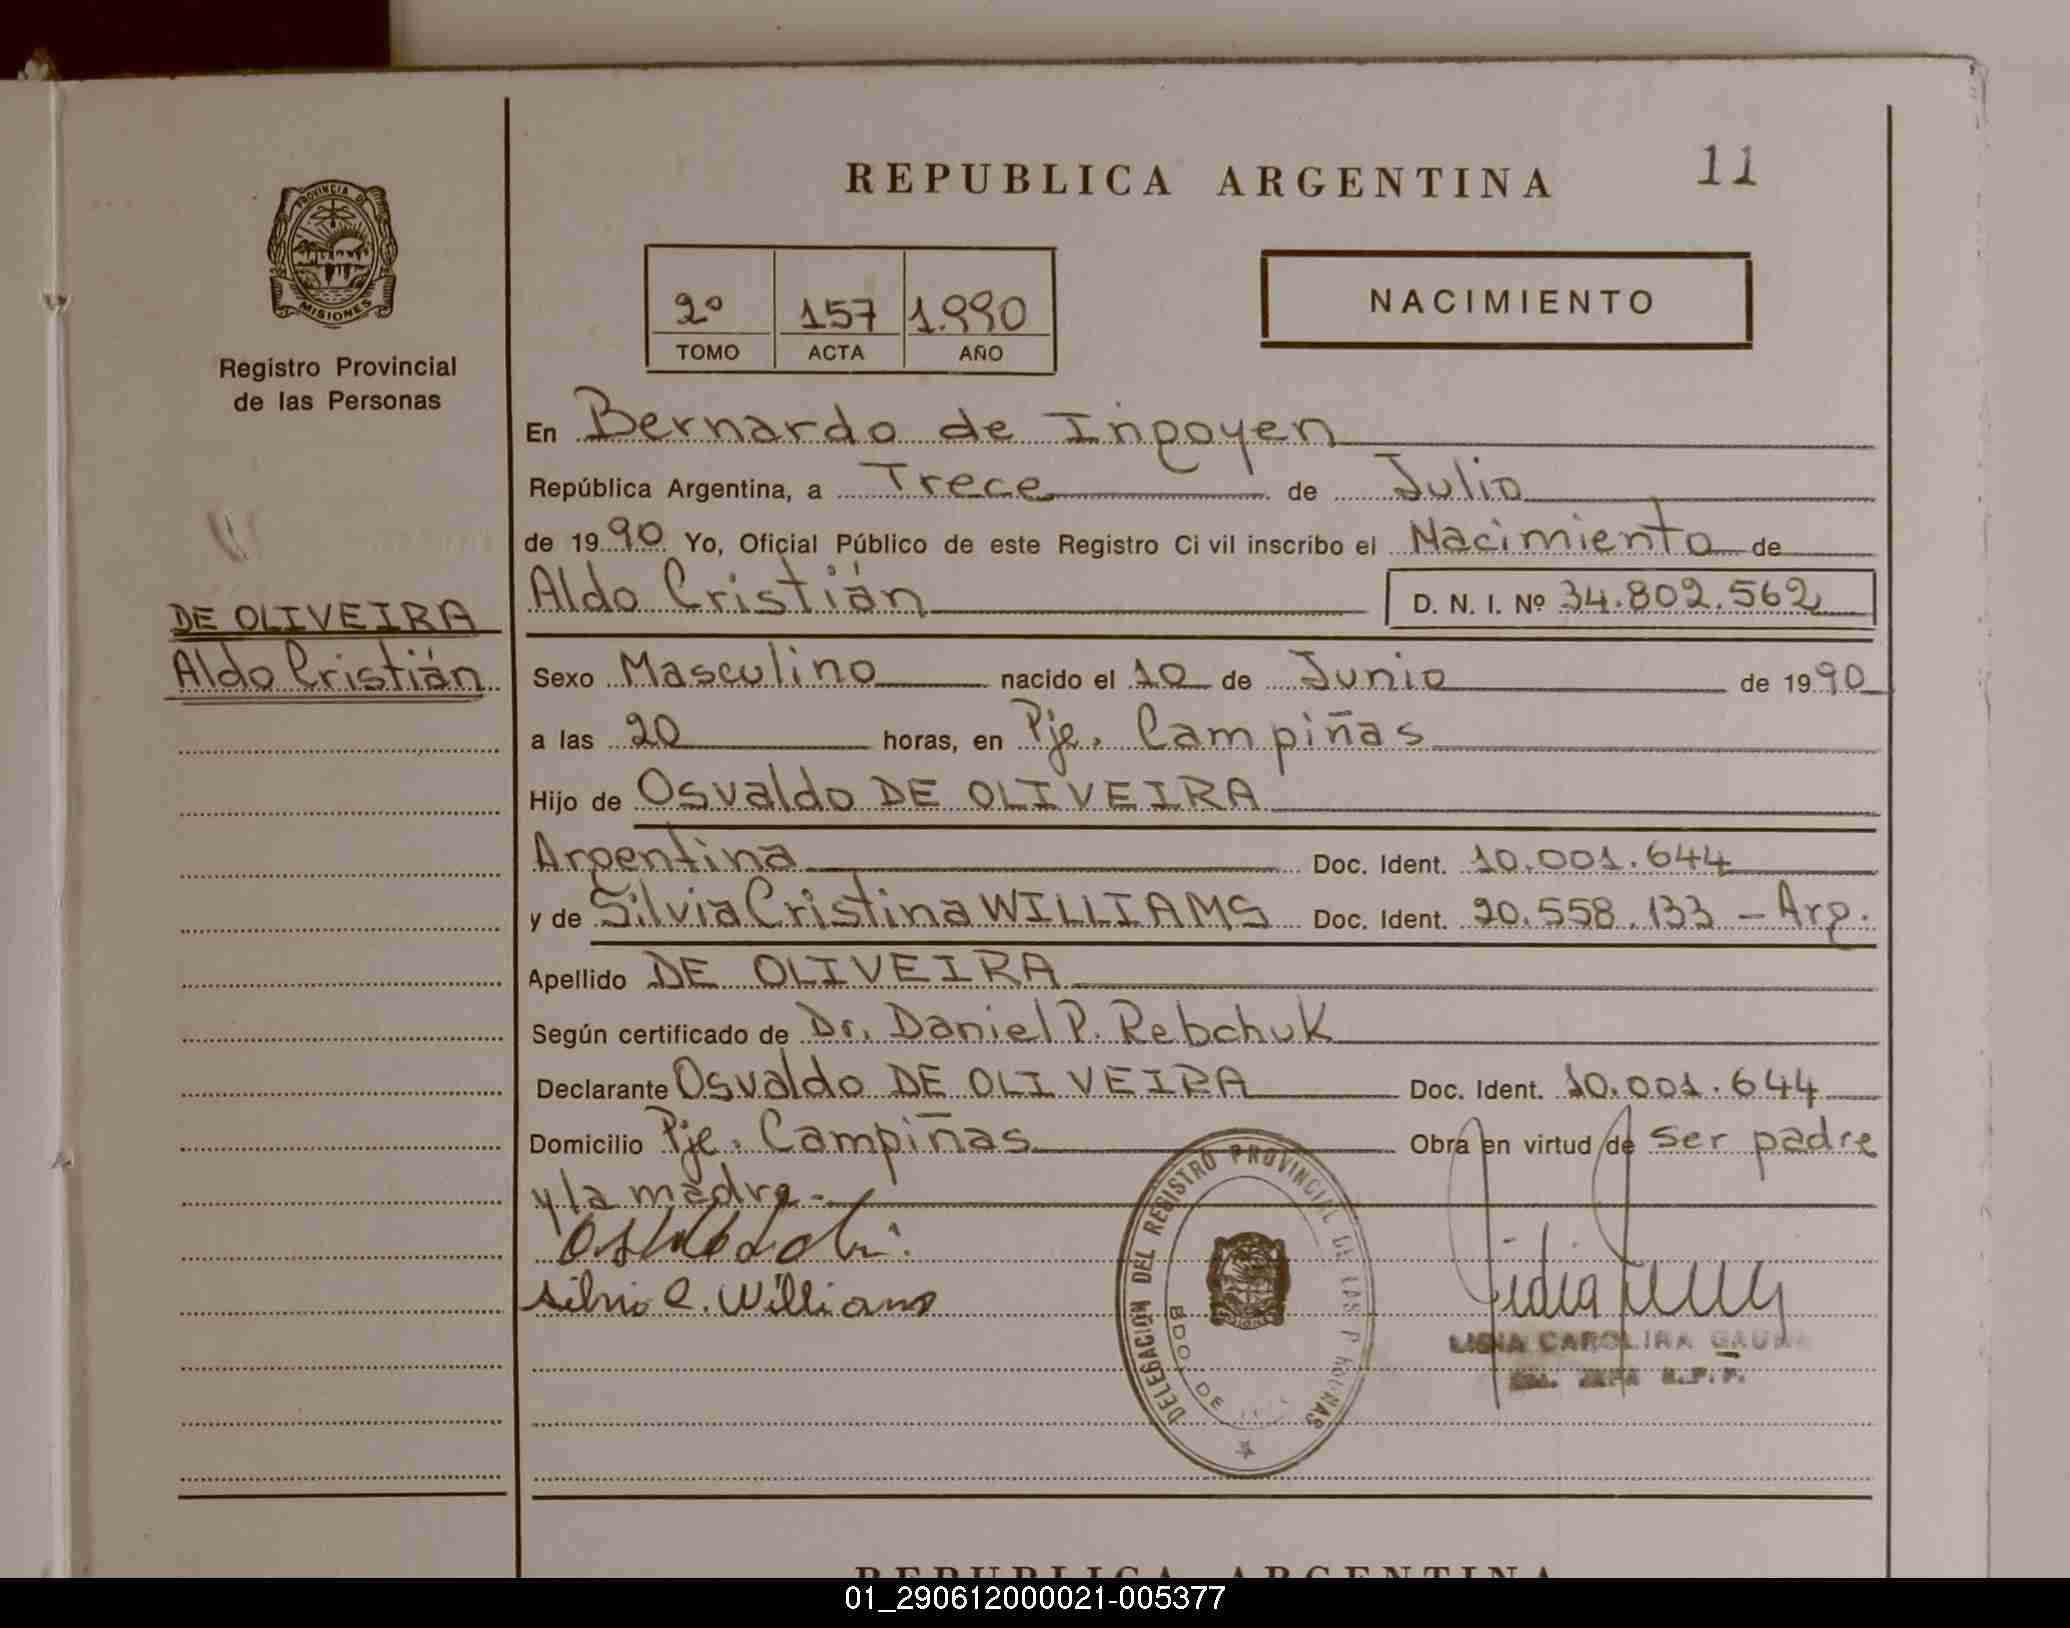 REPUBLICA ARGENTINA
11
PROVINCIA DE
MISIONES
Registro Provincial
de las Personas
2º 157 1.990
TOMO ACTA AÑO
NACIMIENTO
En Bernardo de Irigoyen
República Argentina, a Trece de Julio
de 1990 Yo, Oficial Público de este Registro Ci vil inscribo el Nacimiento de
Aldo Cristián D. N. I. Nº 34.802.562
DE OLIVEIRA
Aldo Cristián
Sexo Masculino nacido el 10 de Junio de 1990
a las 20 horas, en Pje. Campiñas
Hijo de Osvaldo DE OLIVEIRA
Argentina Doc. Ident. 10.001.644
y de Silvia Cristina WILLIAMS Doc. Ident. 20.558.133 - Arg.
Apellido DE OLIVEIRA
Según certificado de Dr. Daniel P. Rebchuk
Declarante Osvaldo DE OLIVEIRA Doc. Ident. 10.001.644
Domicilio Pje. Campiñas Obra en virtud de ser padre
y la madre.-
Silvia C. Williams
DELEGACION DEL REGISTRO PROVINCIAL DE LAS PERSONAS
BDO. DE
LIDIA CAROLINA
REPUBLICA ARGENTINA
01_290612000021-005377